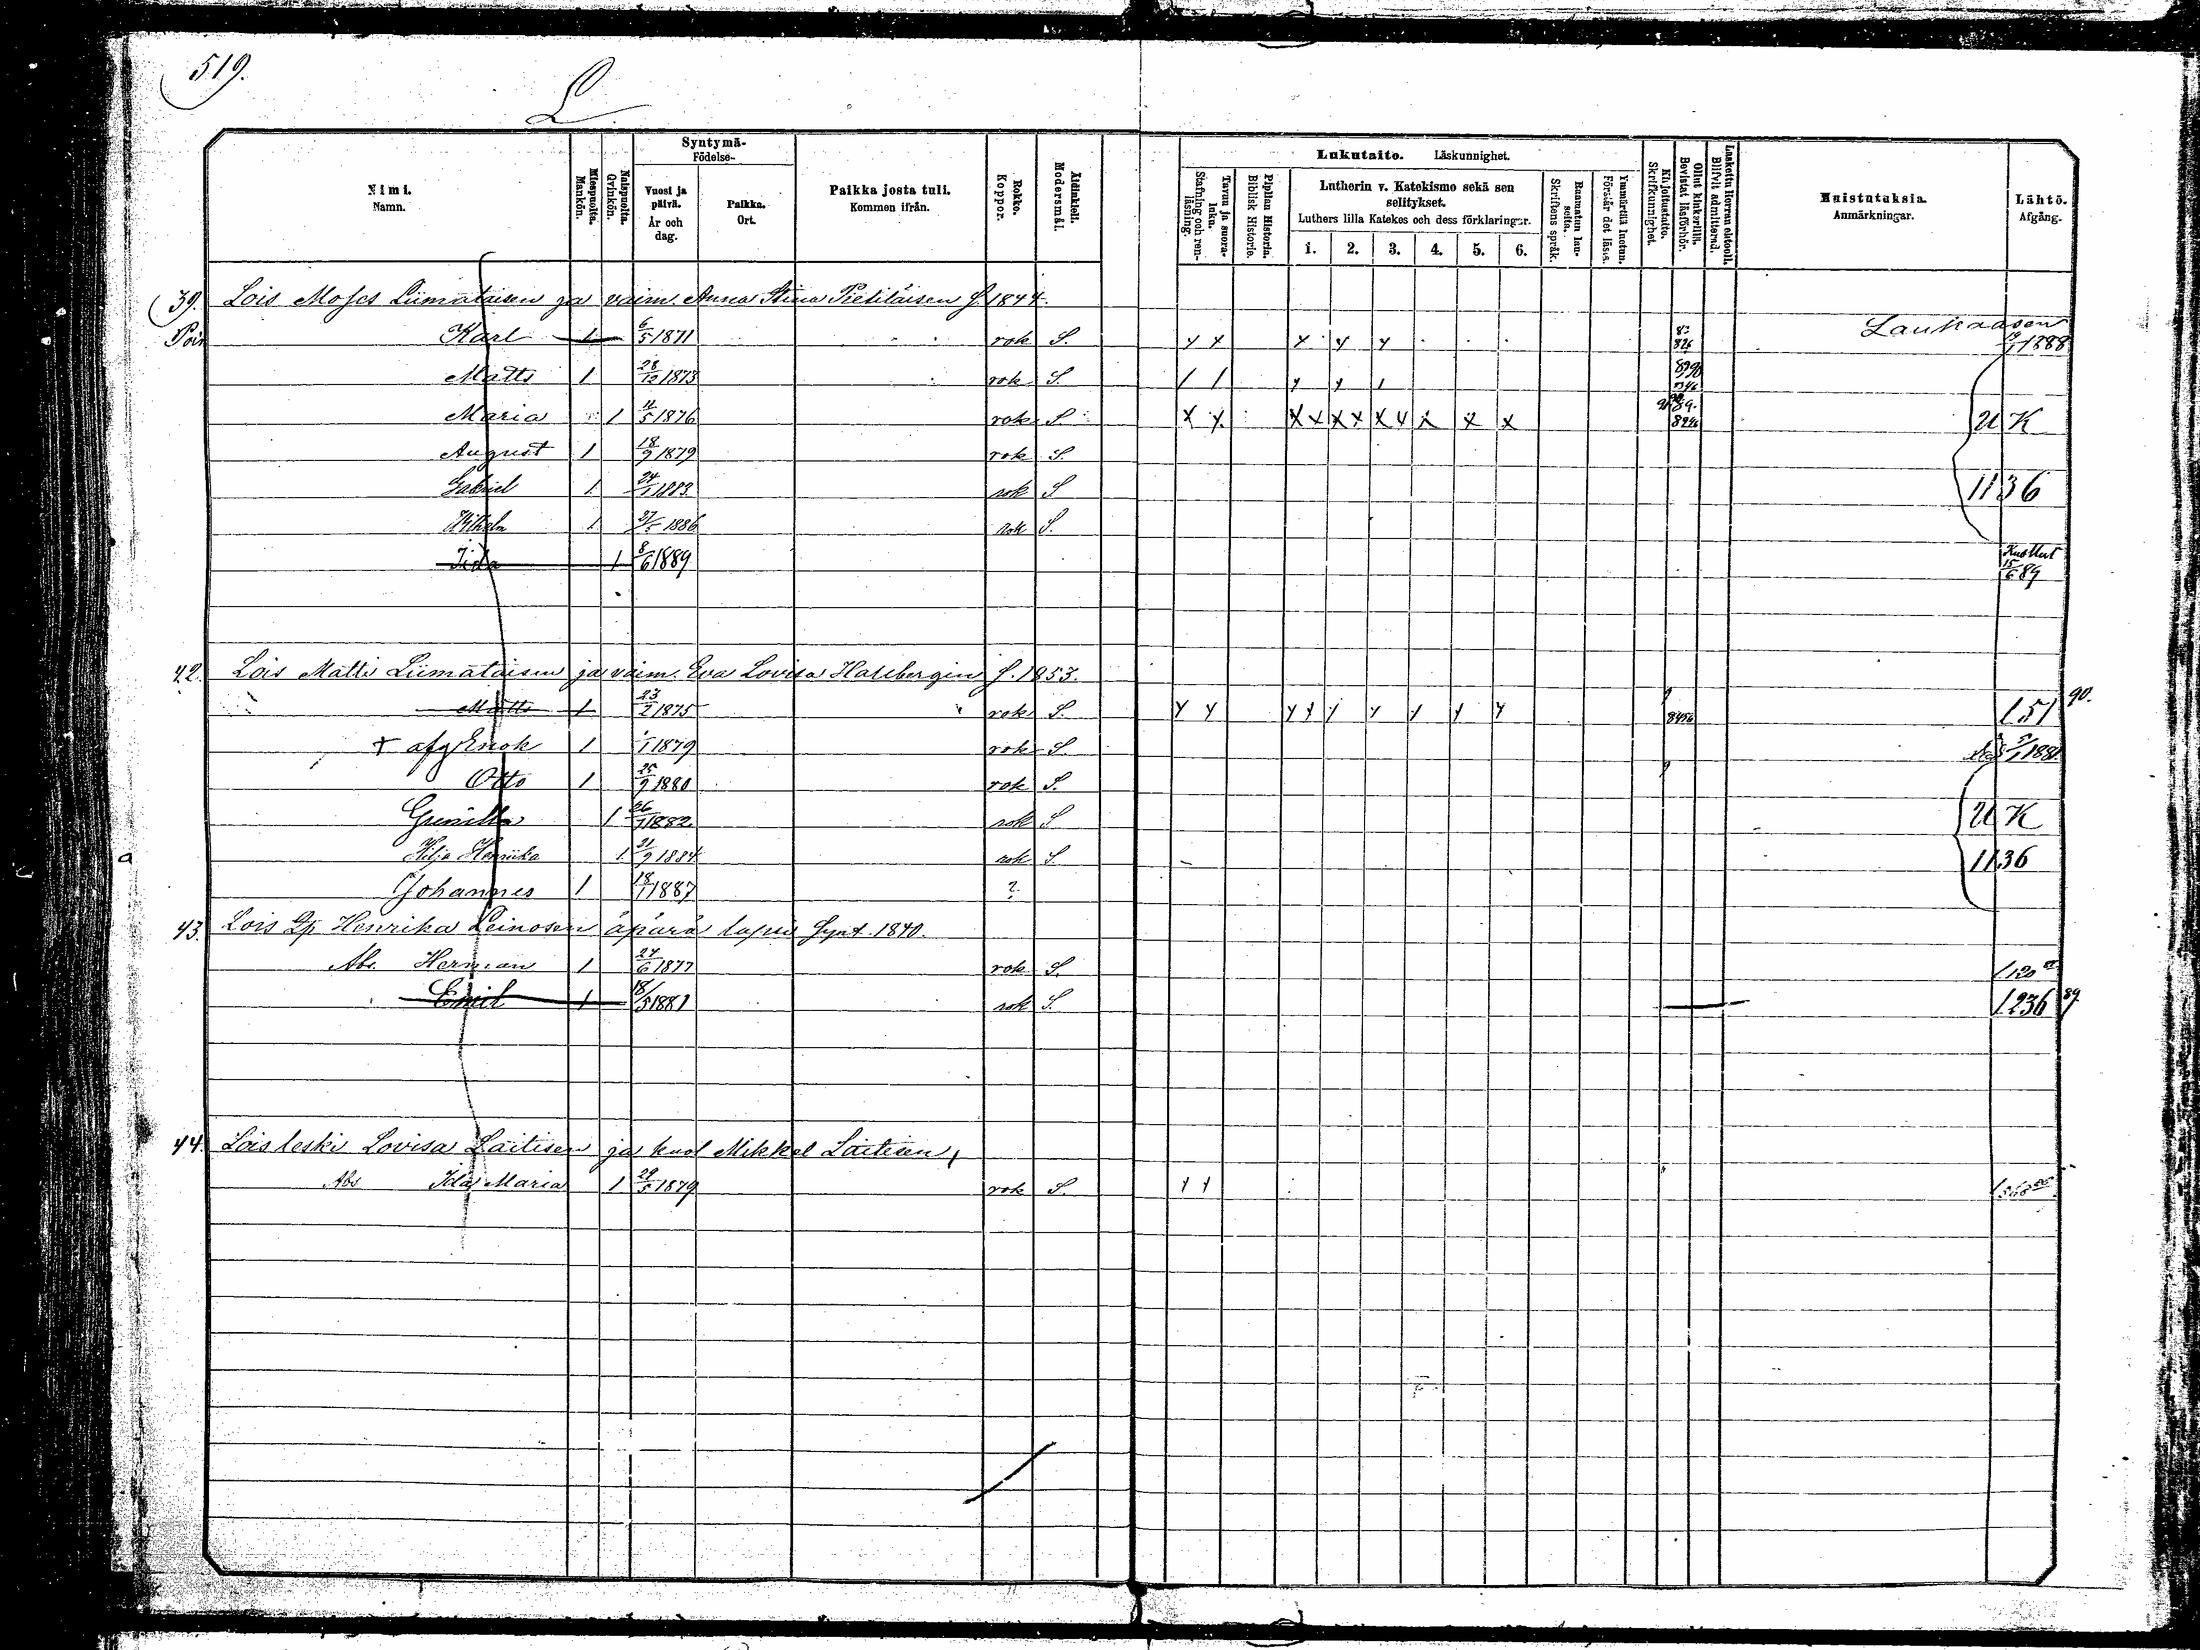 519.
L
Nimi.
Namn.
Miespuolta.
Mankön.
Naispuolta.
Qvinkön.
Syntymä-
Födelse-
Vuosi ja
päivä.
År och
dag.
Paikka.
Ort.
Paikka josta tuli.
Kommen ifrån.
Rokko.
Koppor.
Äidinkieli.
Modersmål.
Lukutaito. Läskunnighet.
Tavuu ja suora-
luku.
Stafning och ren-
läsning.
Piplian Historia.
Biblisk Historie.
Lutherin v. Katekismo sekä sen
selitykset.
Luthers lilla Katekes och dess förklaringar.
1. 2. 3. 4. 5. 6.
Raamatun lau-
seita.
Skriftens språk.
Ymmärtää luetun.
Förstår det lästa.
Kirjoitustaito.
Skrifkunnighet.
Ollut kinkerillä.
Bevistat läsförhör.
Laskettu Herran ehtooll.
Blifvit admitterad.
Muistutuksia.
Anmärkningar.
Lähtö.
Afgång.
39. Lois Moses Liimataisen ja vaim. Anna Stina Pietiläisen f. 1844.
Pois Karl 1 6/5 1871 rok S. y y x y y 82 826 Lauhaasen 1888
Matts 1 28/12 1873 rok S. 1 1
Maria 1 11/5 1876 rok S. x y. x x x x x y x x x 89. U K
August 1 18/9 1879 rok S.
Gabriel 1 24/1 1883 rok S 1136
Wilhelm 1 27/5 1886 rok S.
Iida 1 8/6 1889 Kuollut 15/6 89
42. Lois Matti Liimataisen ja vaim. Eva Lovisa Harlbergin f. 1853.
Matts 1 23/2 1875 rok S. y y y y y y y y y 8456 151 90.
+ afg Enok 1 1/1 1879 rok S.
Otto 1 25/9 1880 rok S.
Gunilla 1 26/1 1882 rok S U K
Hilja Henrika 1 21/9 1884 rok S. 1136
Johannes 1 18/1 1887 ?
43. Lois Lp Henrika Leinosen äpärä lapsi Synt. 1840.
Abs. Herman 1 27/6 1877 rok S. 120
Emil 1 18/5 1881 rok S. 1236 89
44. Lois leski Lovisa Laitisen ja kuol Mikkel Laitisen,
Abs Ida Maria 1 29/5 1879 rok S. y y